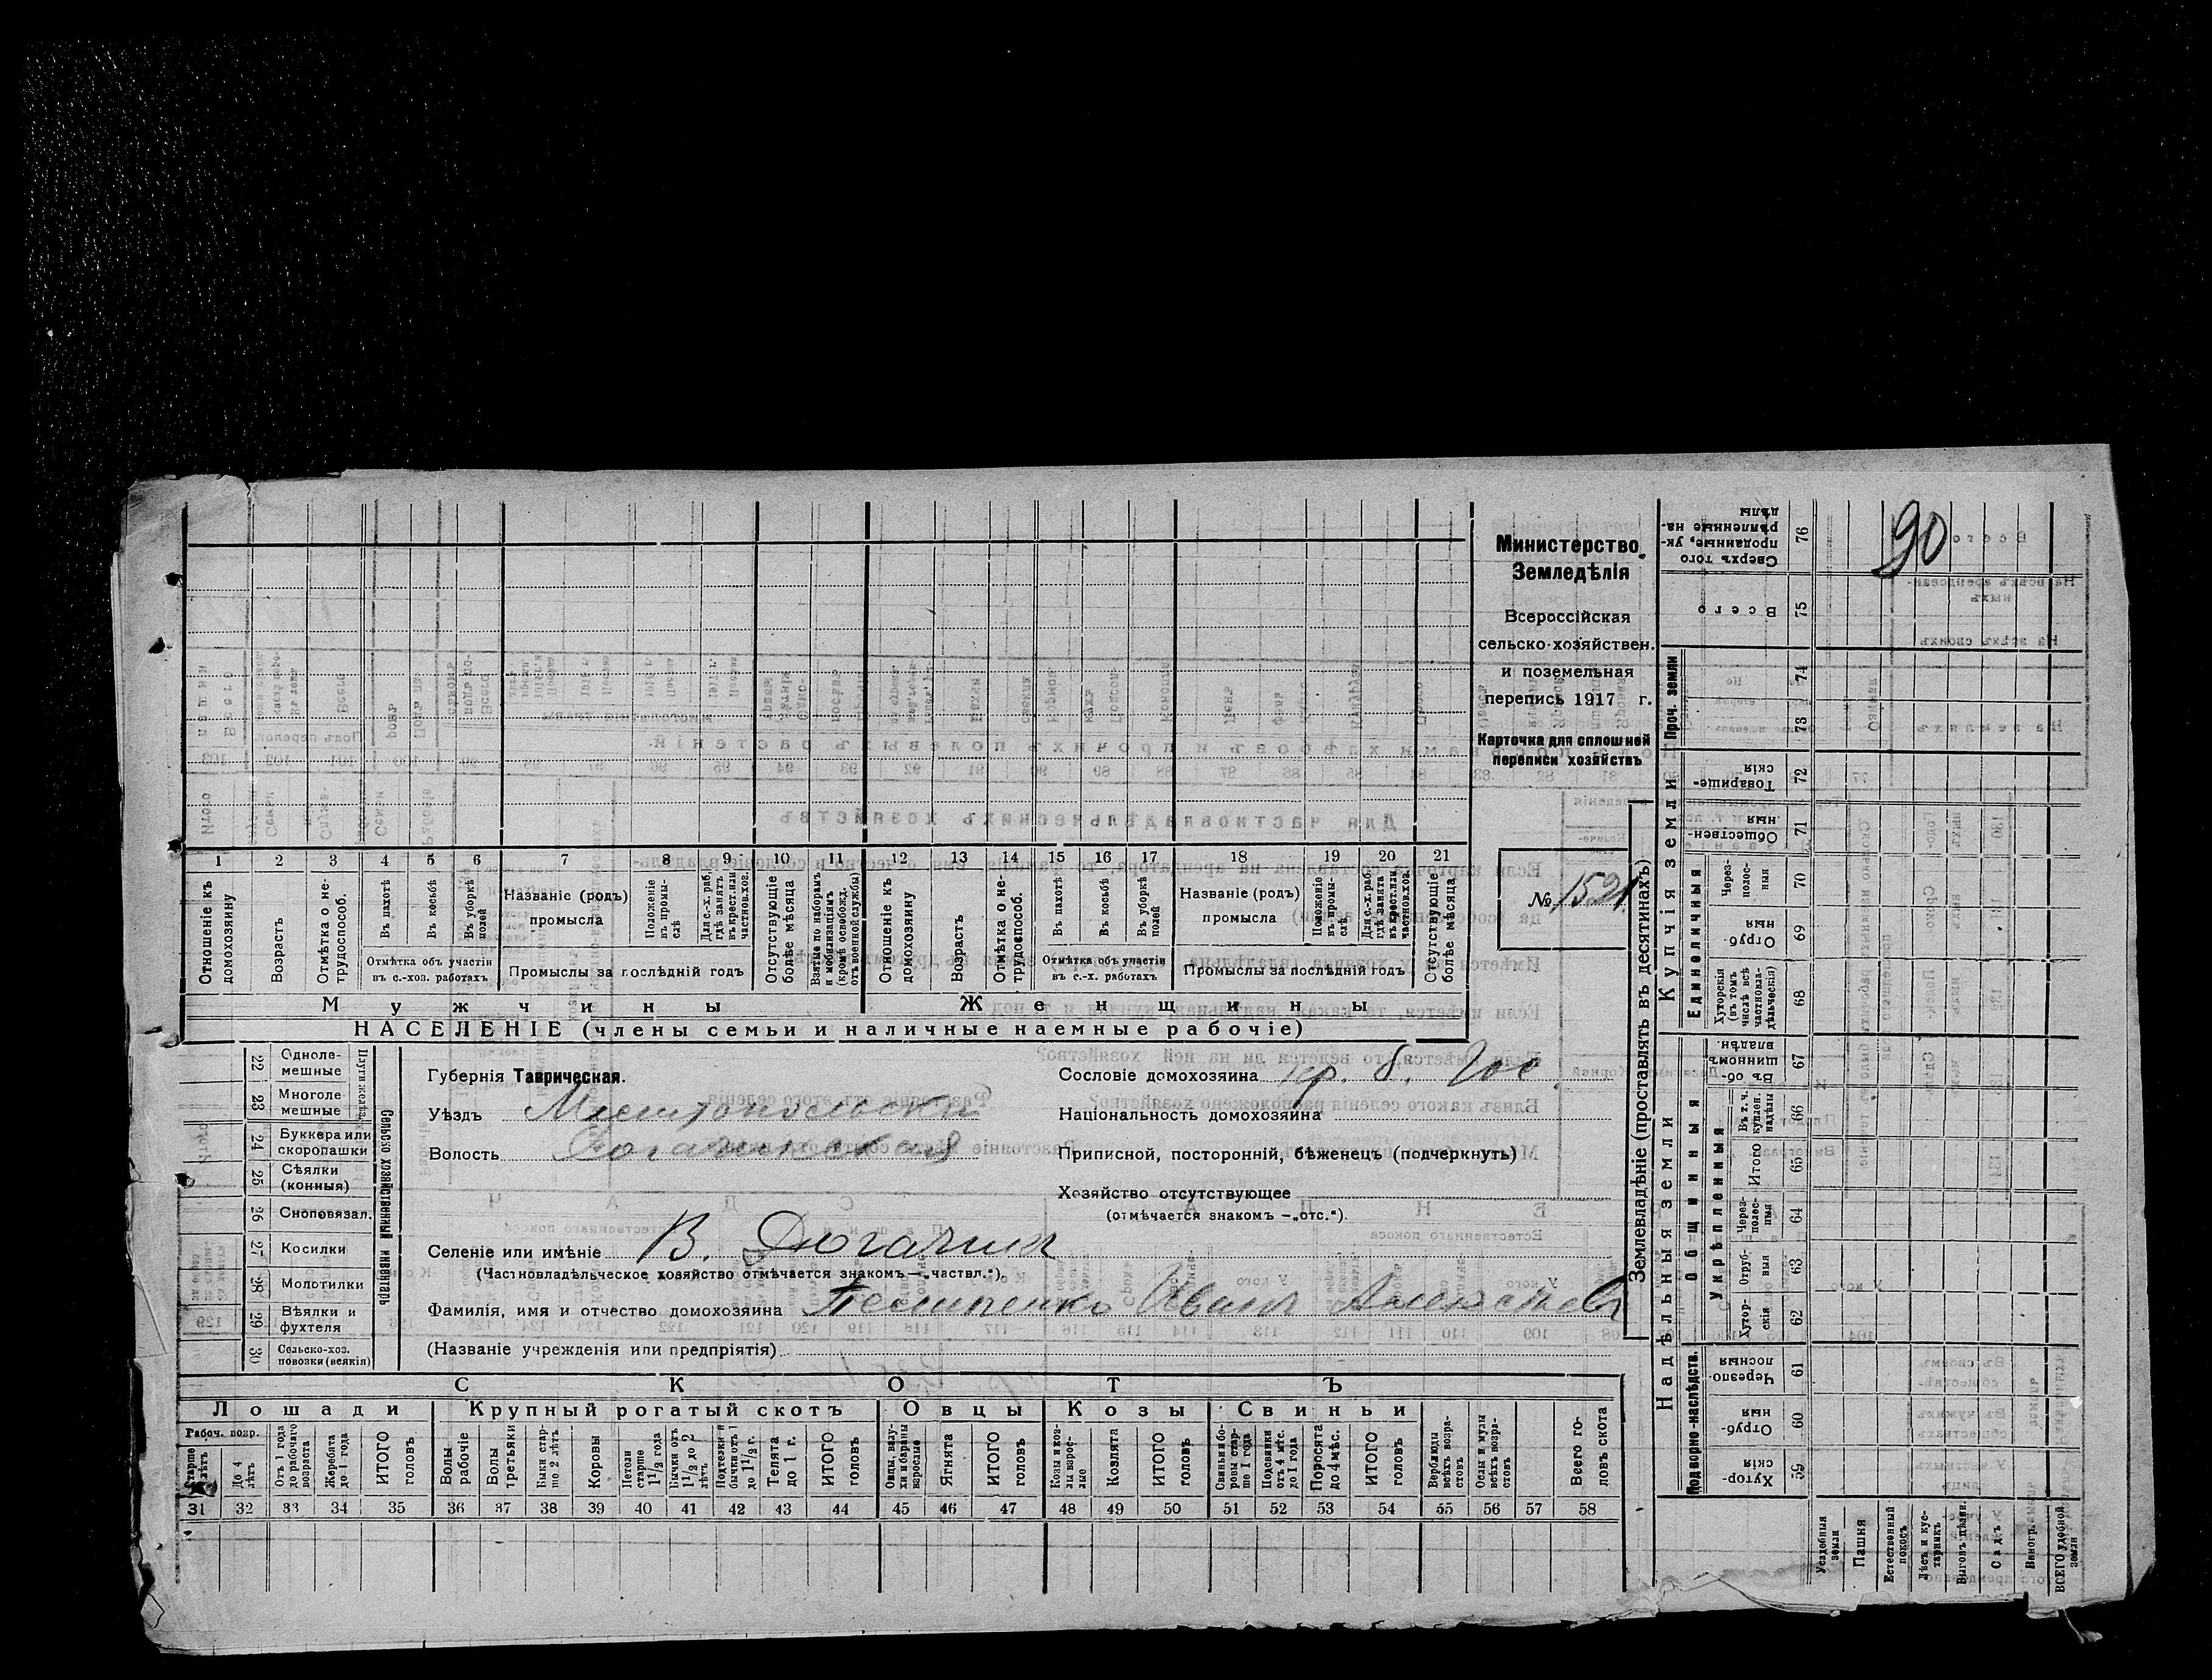 90
Министерство
Земледѣлія
Всероссійская
сельско-хозяйствен.
и поземельная
перепись 1917 г.
Карточка для сплошней
переписи хозяйствъ
№ 1521
1 2 3 4 5 6 7 8 9 10 11 12 13 14 15 16 17 18 19 20 21
Отношеніе къ домохозяину
Возрастъ
Отмѣтка о не-трудоспособ.
Въ пахотѣ
Въ косьбѣ
Въ уборкѣ полей
Отмѣтка объ участіи въ с.-хоз. работахъ
Названіе (родъ) промысла
Положеніе въ промы-слѣ
Для с.-х. раб. гдѣ занятъ въ крест. или частнов. хоз.
Промыслы за послѣдній годъ
Отсутствующіе болѣе мѣсяца
Взятые по наборамъ и мобилизаціямъ (кромѣ освобожд. отъ военной службы)
Отношеніе къ домохозяину
Возрастъ
Отмѣтка о не-трудоспособ.
Въ пахотѣ
Въ косьбѣ
Въ уборкѣ полей
Отмѣтка объ участіи въ с.-х. работахъ
Названіе (родъ) промысла
Положеніе въ промы-слѣ
Для с.-х. раб. гдѣ занята въ крест. или частнов. хоз.
Промыслы за послѣдній годъ
Отсутствующіе болѣе мѣсяца
Мужчины
Женщины
НАСЕЛЕНІЕ (члены семьи и наличные наемные рабочіе)
22 Одноле-мешные
23 Многоле-мешные
24 Буккера или скоропашки
25 Сѣялки (конныя)
26 Сноповязал.
27 Косилки
28 Молотилки
29 Вѣялки и фухтеля
30 Сельско-хоз. повозки (всякія)
Сельско хозяйственный инвентарь
Губернія Таврическая.
Уѣздъ Мелитопольскій
Волость
Сословіе домохозяина кр. б.
Національность домохозяина
Приписной, посторонній, бѣженецъ (подчеркнуть)
Хозяйство отсутствующее
(отмѣчается знакомъ —„отс.“).
Селеніе или имѣніе В.
(Частновладѣльческое хозяйство отмѣчается знакомъ—„частвл.“).
Фамилія, имя и отчество домохозяина Иванъ
(Названіе учрежденія или предпріятія)
СКОТЪ
Лошади
Крупный рогатый скотъ
Овцы
Козы
Свиньи
Рабоч. возр.
До 4 лѣтъ
Отъ 1 года до рабочаго возраста
Жеребята до 1 года
ИТОГО головъ
Волы рабочіе
Волы третьяки
Быки стар-ше 2 лѣтъ
Коровы
Нетели старше 1½ года
Бычки отъ 1½ до 2 лѣтъ
Подтелки и бычки отъ 1 до 1½ г.
Телята до 1 г.
ИТОГО головъ
Овцы, валу-хи и бараны взрослые
Ягнята
ИТОГО головъ
Козы и коз-лы взрос-лые
Козлята
ИТОГО головъ
Свиньи и бо-ровы стар-ше 1 года
Подсвинки отъ 4 мѣс. до 1 года
Поросята до 4 мѣс.
ИТОГО головъ
Верблюды всѣхъ возра-стовъ
Ослы и мулы всѣхъ возра-стовъ
Всего го-ловъ скота
31 32 33 34 35 36 37 38 39 40 41 42 43 44 45 46 47 48 49 50 51 52 53 54 55 56 57 58
Землевладѣніе (проставлять въ десятинахъ)
Надѣльныя земли
Купчія земли
Проч. земли
Подворно-наслѣдств.
Общинныя
Укрѣпленныя
Единоличныя
59 Хутор-скія
60 Отруб-ныя
61 Черезпо-лосныя
62 Хутор-скія
63 Отруб-ныя
64 Через-полос-ныя
65 Итого
66 Въ т. ч. куплен. надѣлы
67 Въ об-щинномъ владѣн.
68 Хуторскія (въ томъ числѣ всѣ частновла-дѣльческія)
69 Отруб-ныя
70 Через-полос-ныя
71 Обществен-ныя
72 Товарище-скія
73
74
75 Всего
76 Сверхъ того проданные, ук-рѣпленные на-дѣлы
Усадебныя земли
Пашня
Естественный покосъ
Лѣсъ и кус-тарникъ
Выгонъ цѣлин.
Садъ
Виногр.
ВСЕГО удобной земли